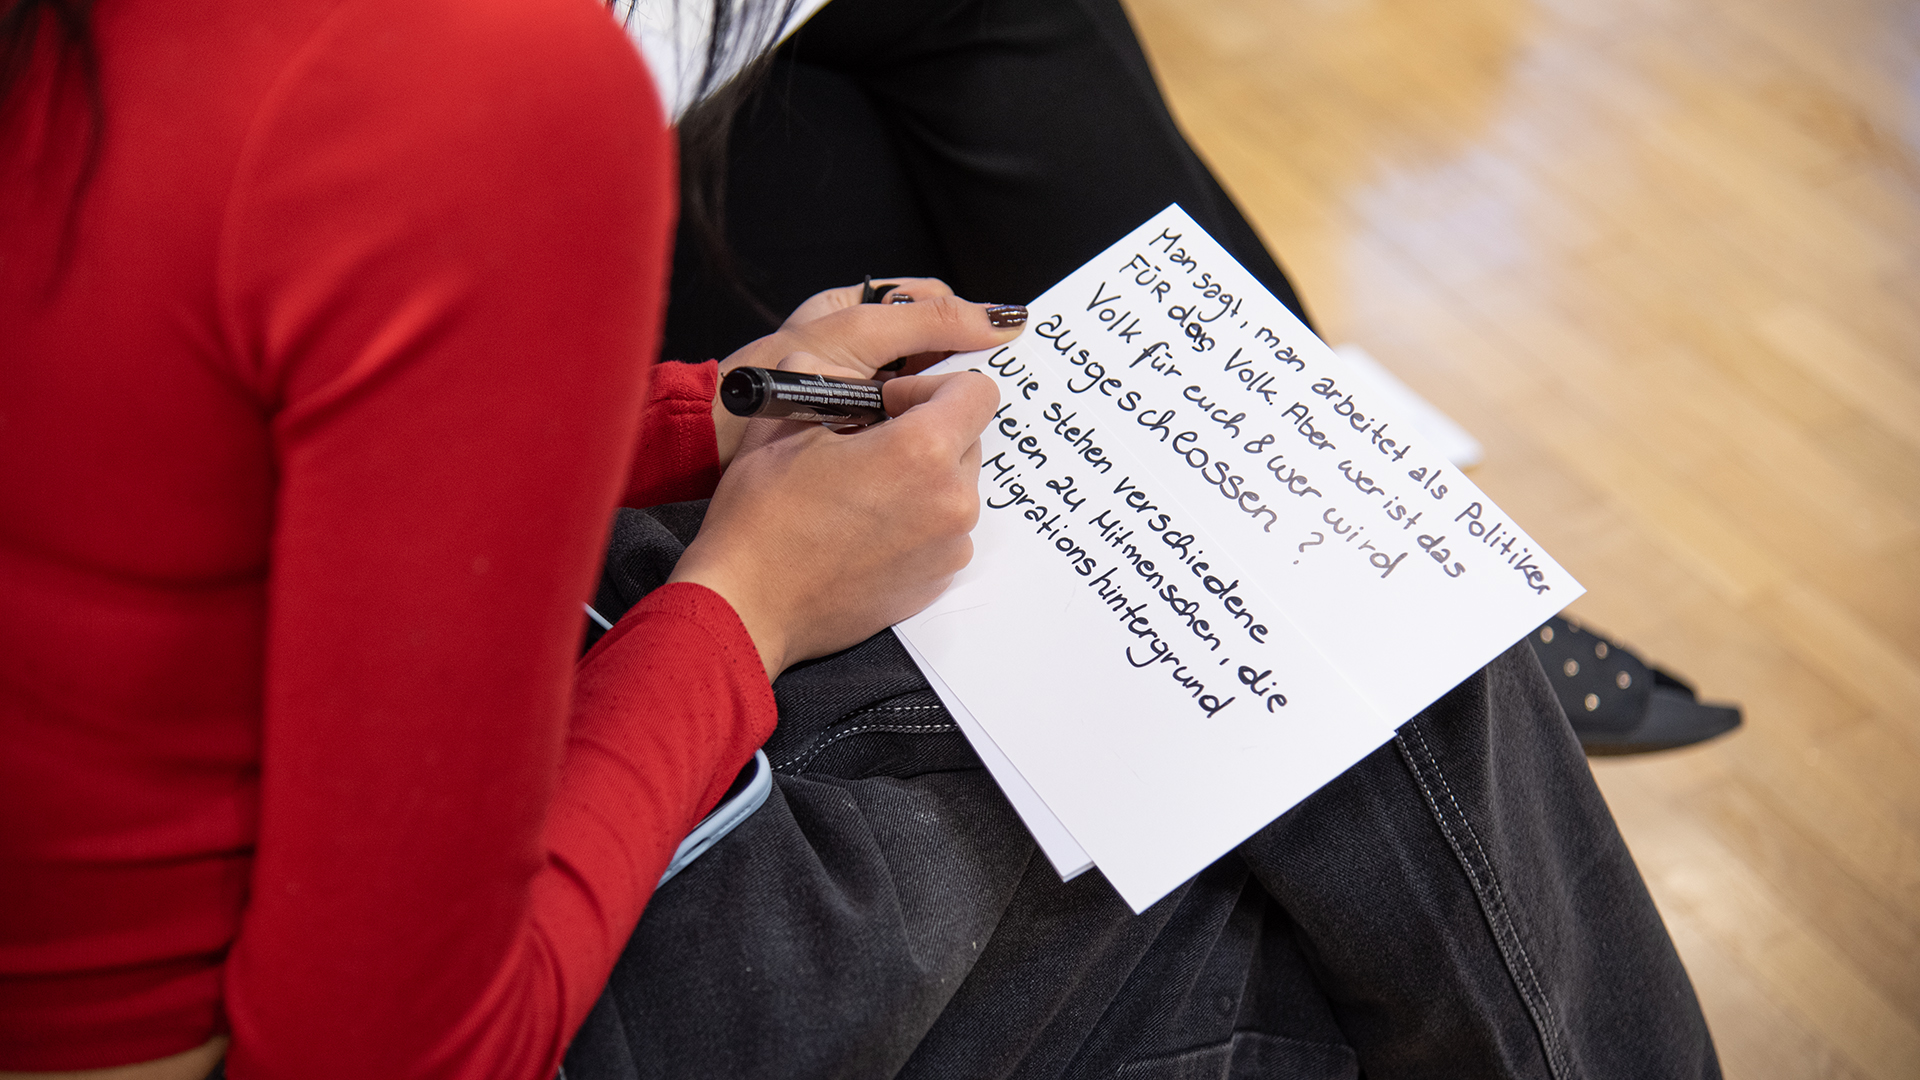 Man sagt, man arbeitet als Politiker
FÜR das Volk. Aber wer ist das
Volk für euch & wer wird
ausgeschlossen?
Wie stehen verschiedene
teien zu Mitmenschen, die
Migrationshintergrund